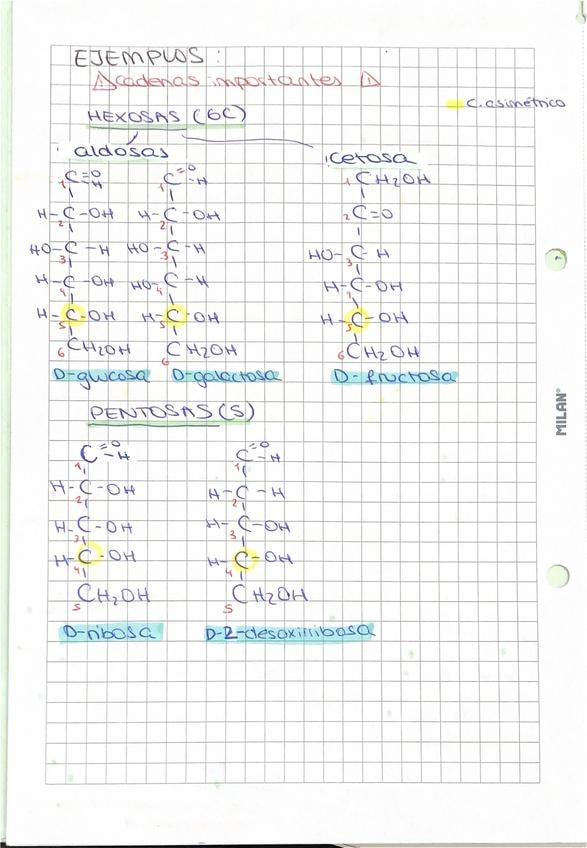 EJEMPLOS:
⚠cadenas importantes ⚠
C. asimétrico
HEXOSAS (6C)
aldosas
cetosa
1 C=O H
1 C=O -H
1 CH2OH
H-C-OH 2
H-C-OH 2
2 C=O
HO-C-H 3
HO-C-H 3
HO-C H 3
H-C-OH 4
HO-C-H 4
H-C-OH 4
H-C-OH 5
H-C-OH 5
H-C-OH 5
6 CH2OH
6 CH2OH
6 CH2OH
D-glucosa
D-galactosa
D-fructosa
PENTOSAS (5)
1 C=O -H
1 C=O -H
H-C-OH 2
H-C-H 2
H-C-OH 3
H-C-OH 3
H-C-OH 4
H-C-OH 4
5 CH2OH
5 CH2OH
D-ribosa
D-2-desoxirribosa
MILAN®